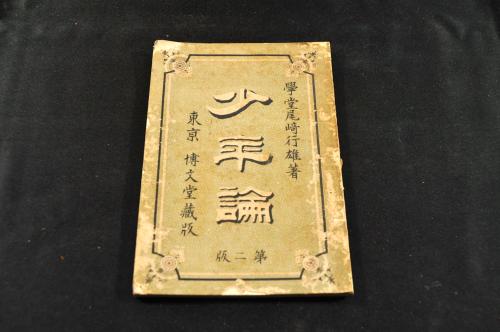 學堂尾﨑行雄著
少年論
東京 博文堂藏版
第二版